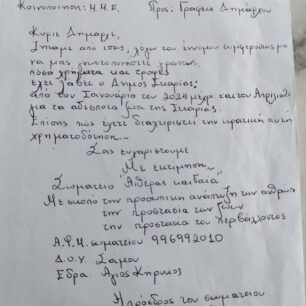 Κοινοποίηση: Μ.Μ.Ε. Προς: Γραφείο Δημάρχου
Κύριε Δήμαρχε,
Ζητάμε από εσάς, λόγω του έννομου συμφέροντος μα
να μας γνωστοποιήσετε γραπτώς,
πόσα χρήματα και τροφές
έχει λάβει ο Δήμος Ικαρίας
από τον Ιανουάριο του 2024 μέχρι και τον Απρίλιο
για τα αδέσποτα ζώα της Ικαρίας.
Επίσης πώς έχετε διαχειριστεί την κρατική αυτή
χρηματοδότηση.
Σας ευχαριστούμε
Με εκτίμηση
Σωματείο "Αθέρας Καιδαιά"
Με σκοπό την προσωπική ανάπτυξη των ανθρώπ
την προστασία των ζώων
την προστασία του περιβάλλοντος
Α.Φ.Μ. σωματείου 996992010
Δ.Ο.Υ. Σάμου
Έδρα: Άγιος Κήρυκος
Η πρόεδρος του σωματείου